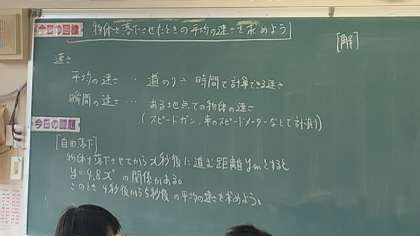 今日の目標 物体を落下させたときの平均の速さを求めよう
[解]
速さ
平均の速さ … 道のり÷時間で計算できる速さ
瞬間の速さ … ある地点での物体の速さ
(スピードガン、車のスピードメーターなどで計測)
今日の課題
[自由落下]
物体を落下させてからx秒後に進む距離ymとすると
y=4.9x²の関係がある。
このとき4秒後から5秒後の平均の速さを求めよう。